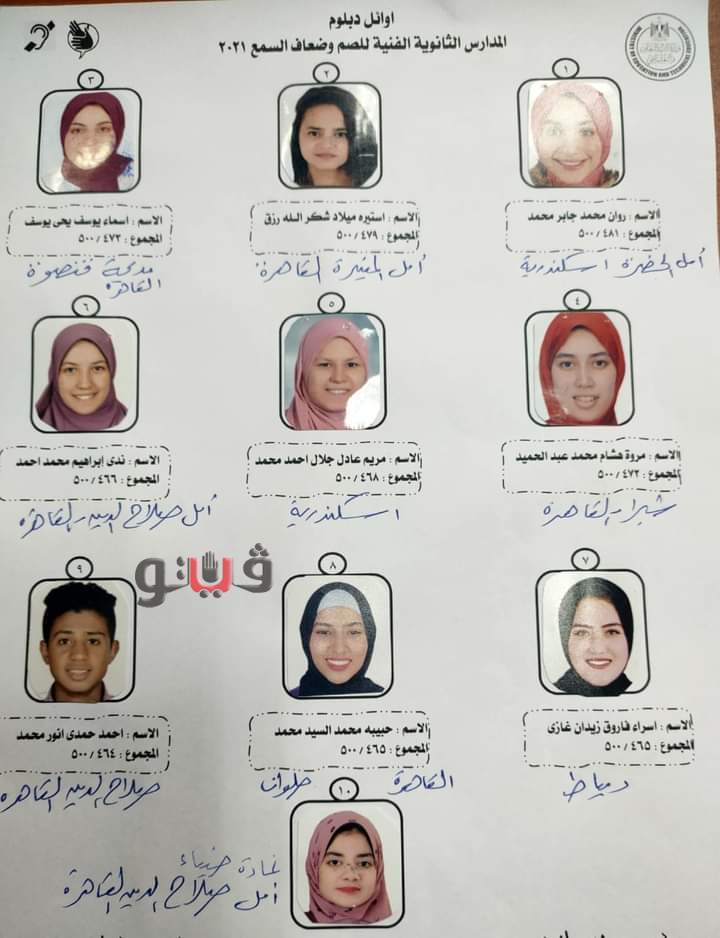 اوائل دبلوم
المدارس الثانوية الفنية للصم وضعاف السمع ٢٠٢١
١
الاسم : روان محمد جابر محمد
المجموع : ٥٠٠/٤٨١
أمل الحضرة اسكندرية
٢
الاسم : استيره ميلاد شكر الله رزق
المجموع : ٥٠٠/٤٧٩
أمل المنيرة القاهرة
٣
الاسم : اسماء يوسف يحى يوسف
المجموع : ٥٠٠/٤٧٣
مدحة قنصوة
القاهرة
٤
الاسم : مروة هشام محمد عبد الحميد
المجموع : ٥٠٠/٤٧٢
شبرا القاهرة
٥
الاسم : مريم عادل جلال احمد محمد
المجموع : ٥٠٠/٤٦٨
اسكندرية
٦
الاسم : ندى إبراهيم محمد احمد
المجموع : ٥٠٠/٤٦٦
أمل صلاح الدين القاهرة
ڤيتو
٧
الاسم : اسراء فاروق زيدان غازى
المجموع : ٥٠٠/٤٦٥
دمياط
٨
الاسم : حبيبه محمد السيد محمد
المجموع : ٥٠٠/٤٦٥
القاهرة حلوان
٩
الاسم : احمد حمدى انور محمد
المجموع : ٥٠٠/٤٦٤
صلاح الدين القاهرة
١٠
غادة ضياء
أمل صلاح الدين القاهرة